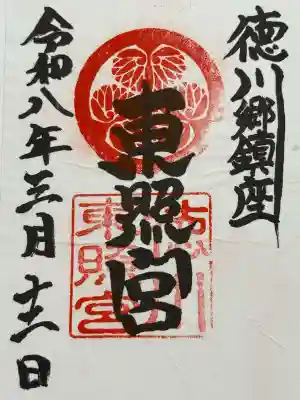 徳川郷鎮座
東照宮
令和八年三月十一日